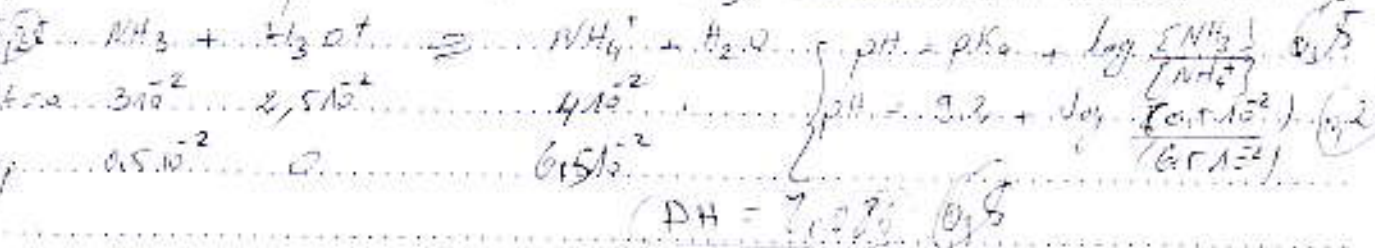 NH₃ + H₃O⁺ ⇌ NH₄⁺ + H₂O pH = pKa + log [NH₃]/[NH₄⁺] 0,5
t=0 3 10⁻² 2,5 10⁻² 4 10⁻² pH = 9.2 + log (0.5 10⁻²)/(6.5 10⁻²)
0.5 10⁻² 0 6,5 10⁻²
pH =